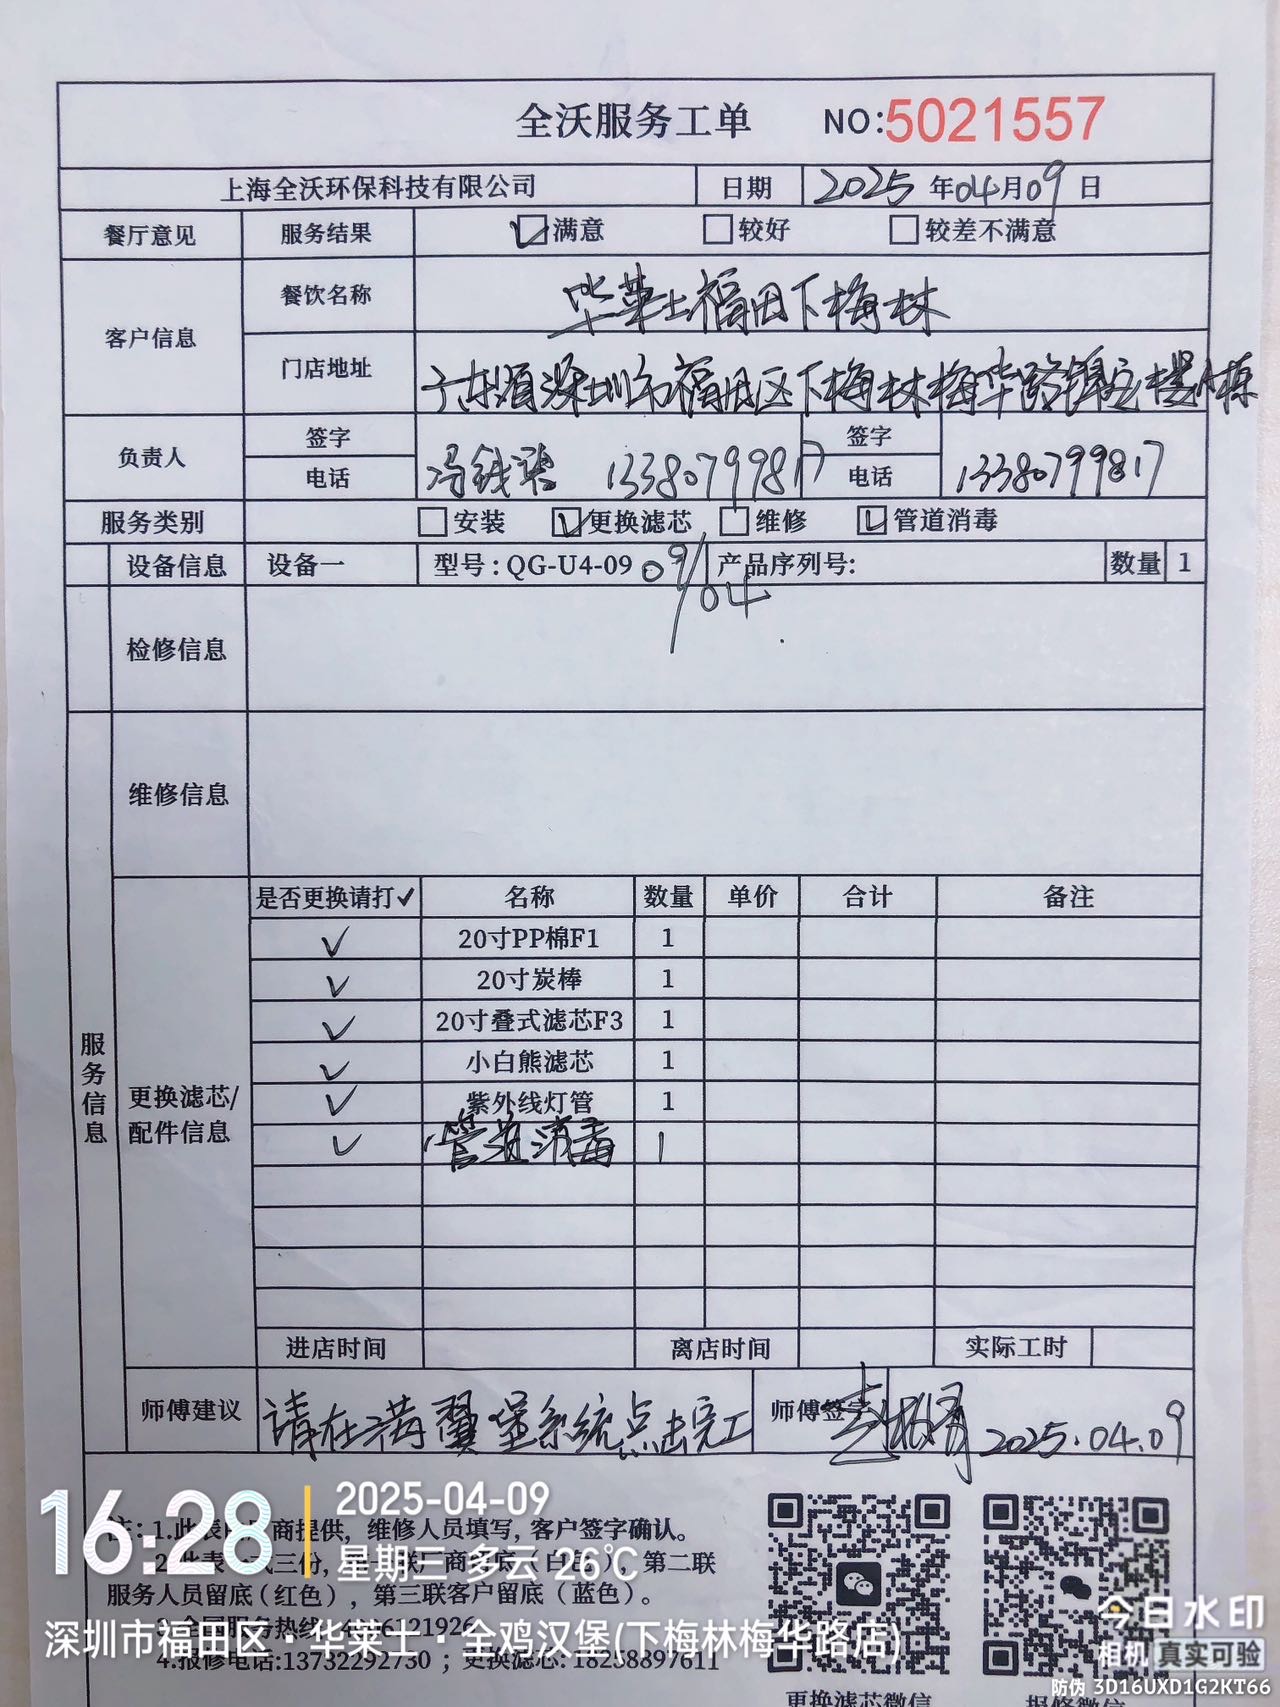 全沃服务工单 NO:5021557
上海全沃环保科技有限公司 日期 2025 年04月09日
餐厅意见 服务结果 满意 较好 较差不满意
客户信息 餐饮名称 华莱士福田下梅林
门店地址 广东省深圳市福田区下梅林梅华路锦宝楼A栋
负责人 签字 签字
电话 冯钱 13380799817 电话 13380799817
服务类别 安装 更换滤芯 维修 管道消毒
设备信息 设备一 型号:QG-U4-09 产品序列号: 数量 1
09/04
检修信息
维修信息
服务信息
更换滤芯/配件信息
是否更换请打✓ 名称 数量 单价 合计 备注
✓ 20寸PP棉F1 1
✓ 20寸炭棒 1
✓ 20寸叠式滤芯F3 1
✓ 小白熊滤芯 1
✓ 紫外线灯管 1
✓ 管道消毒 1
进店时间 离店时间 实际工时
师傅建议 请在满翼堡系统点击完工 师傅签字 2025.04.09
注:1.此表 商提供,维修人员填写,客户签字确认。
2.此表 式三份, 商 底(白 ),第二联
服务人员留底(红色),第三联客户留底(蓝色)。
3.全国服务热线: 6121926
4.报修电话:13732292730 ; 更换滤芯:18258897611
更换滤芯微信 报修微信
16:28 2025-04-09
星期三 多云 26℃
深圳市福田区·华莱士·全鸡汉堡(下梅林梅华路店)
今日水印
相机 真实可验
防伪 3D16UXD1G2KT66